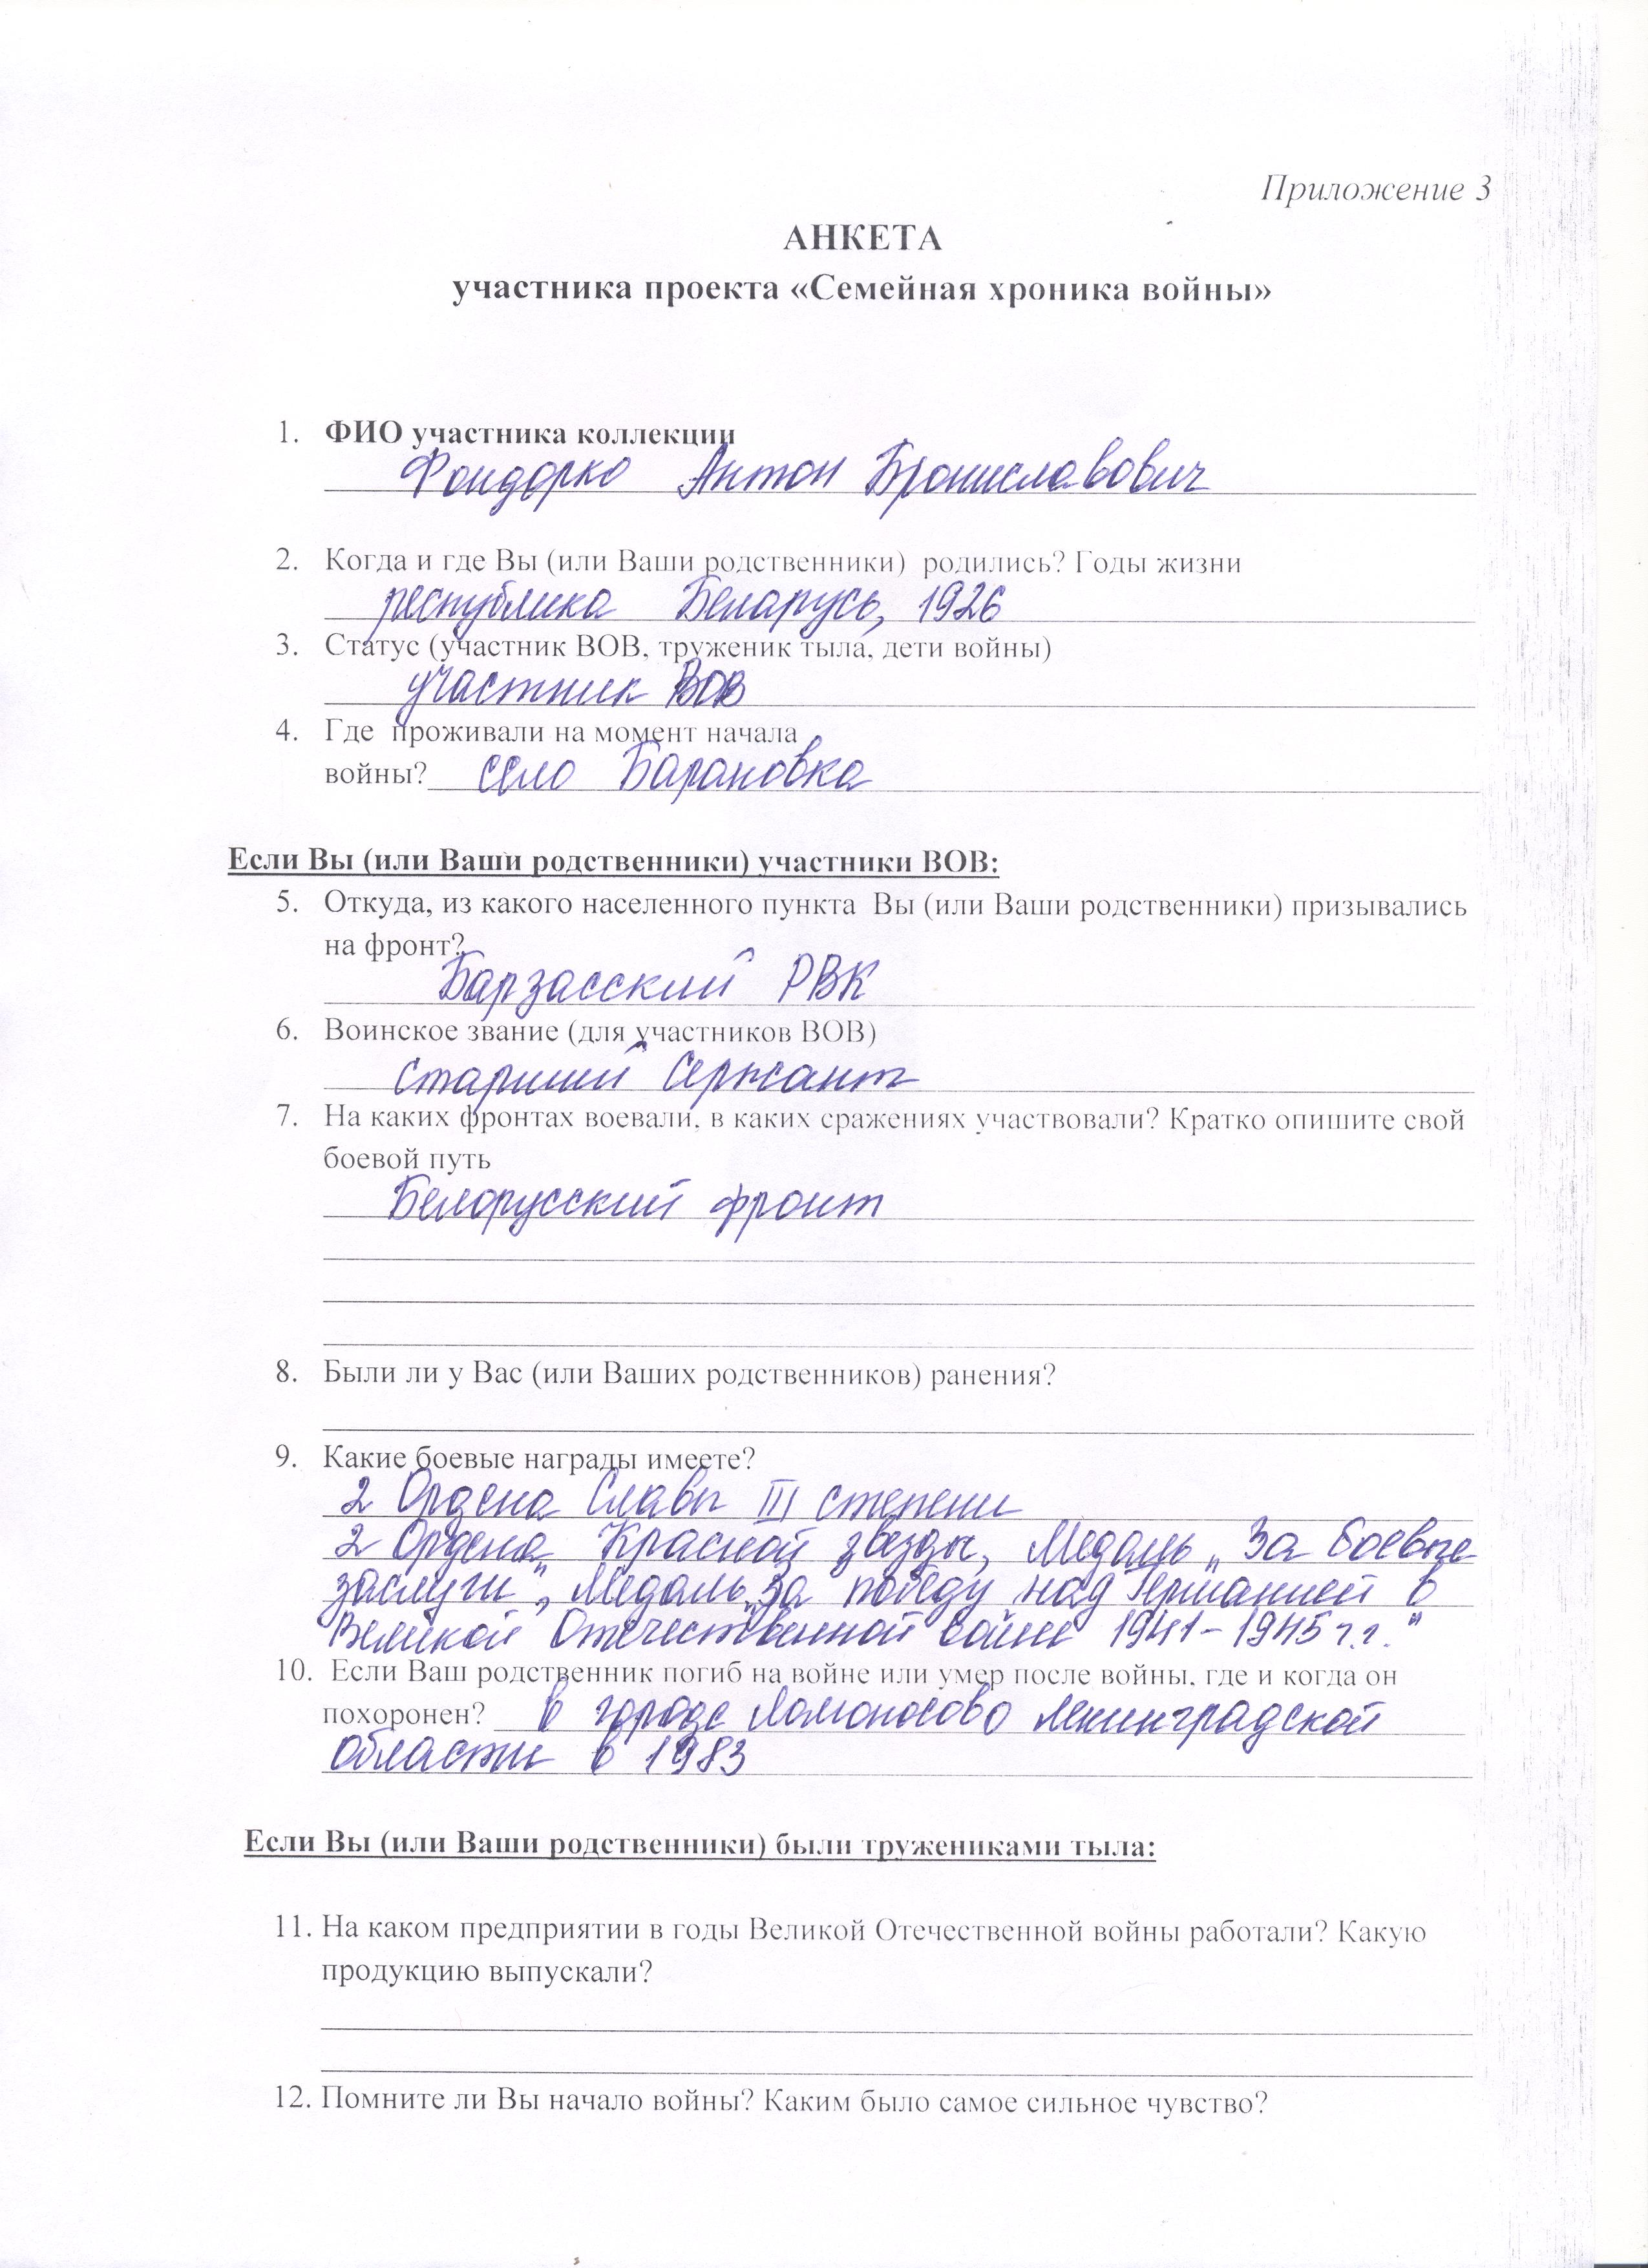 Приложение 3
АНКЕТА
участника проекта «Семейная хроника войны»
1. ФИО участника коллекции
Фондорко Антон Брониславович
2. Когда и где Вы (или Ваши родственники) родились? Годы жизни
республика Беларусь, 1926
3. Статус (участник ВОВ, труженик тыла, дети войны)
участник ВОВ
4. Где проживали на момент начала
войны? село Барановка
Если Вы (или Ваши родственники) участники ВОВ:
5. Откуда, из какого населенного пункта Вы (или Ваши родственники) призывались
на фронт?
Барзасский РВК
6. Воинское звание (для участников ВОВ)
Старший Сержант
7. На каких фронтах воевали, в каких сражениях участвовали? Кратко опишите свой
боевой путь
Белорусский фронт
8. Были ли у Вас (или Ваших родственников) ранения?
9. Какие боевые награды имеете?
2 Ордена Славы III степени
2 Ордена Красной звезды, Медаль „За боевые
заслуги", Медаль „За победу над Германией в
Великой Отечественной войне 1941-1945 г.г."
10. Если Ваш родственник погиб на войне или умер после войны, где и когда он
похоронен? в городе Ломоносово Ленинградской
области в 1983
Если Вы (или Ваши родственники) были тружениками тыла:
11. На каком предприятии в годы Великой Отечественной войны работали? Какую
продукцию выпускали?
12. Помните ли Вы начало войны? Каким было самое сильное чувство?